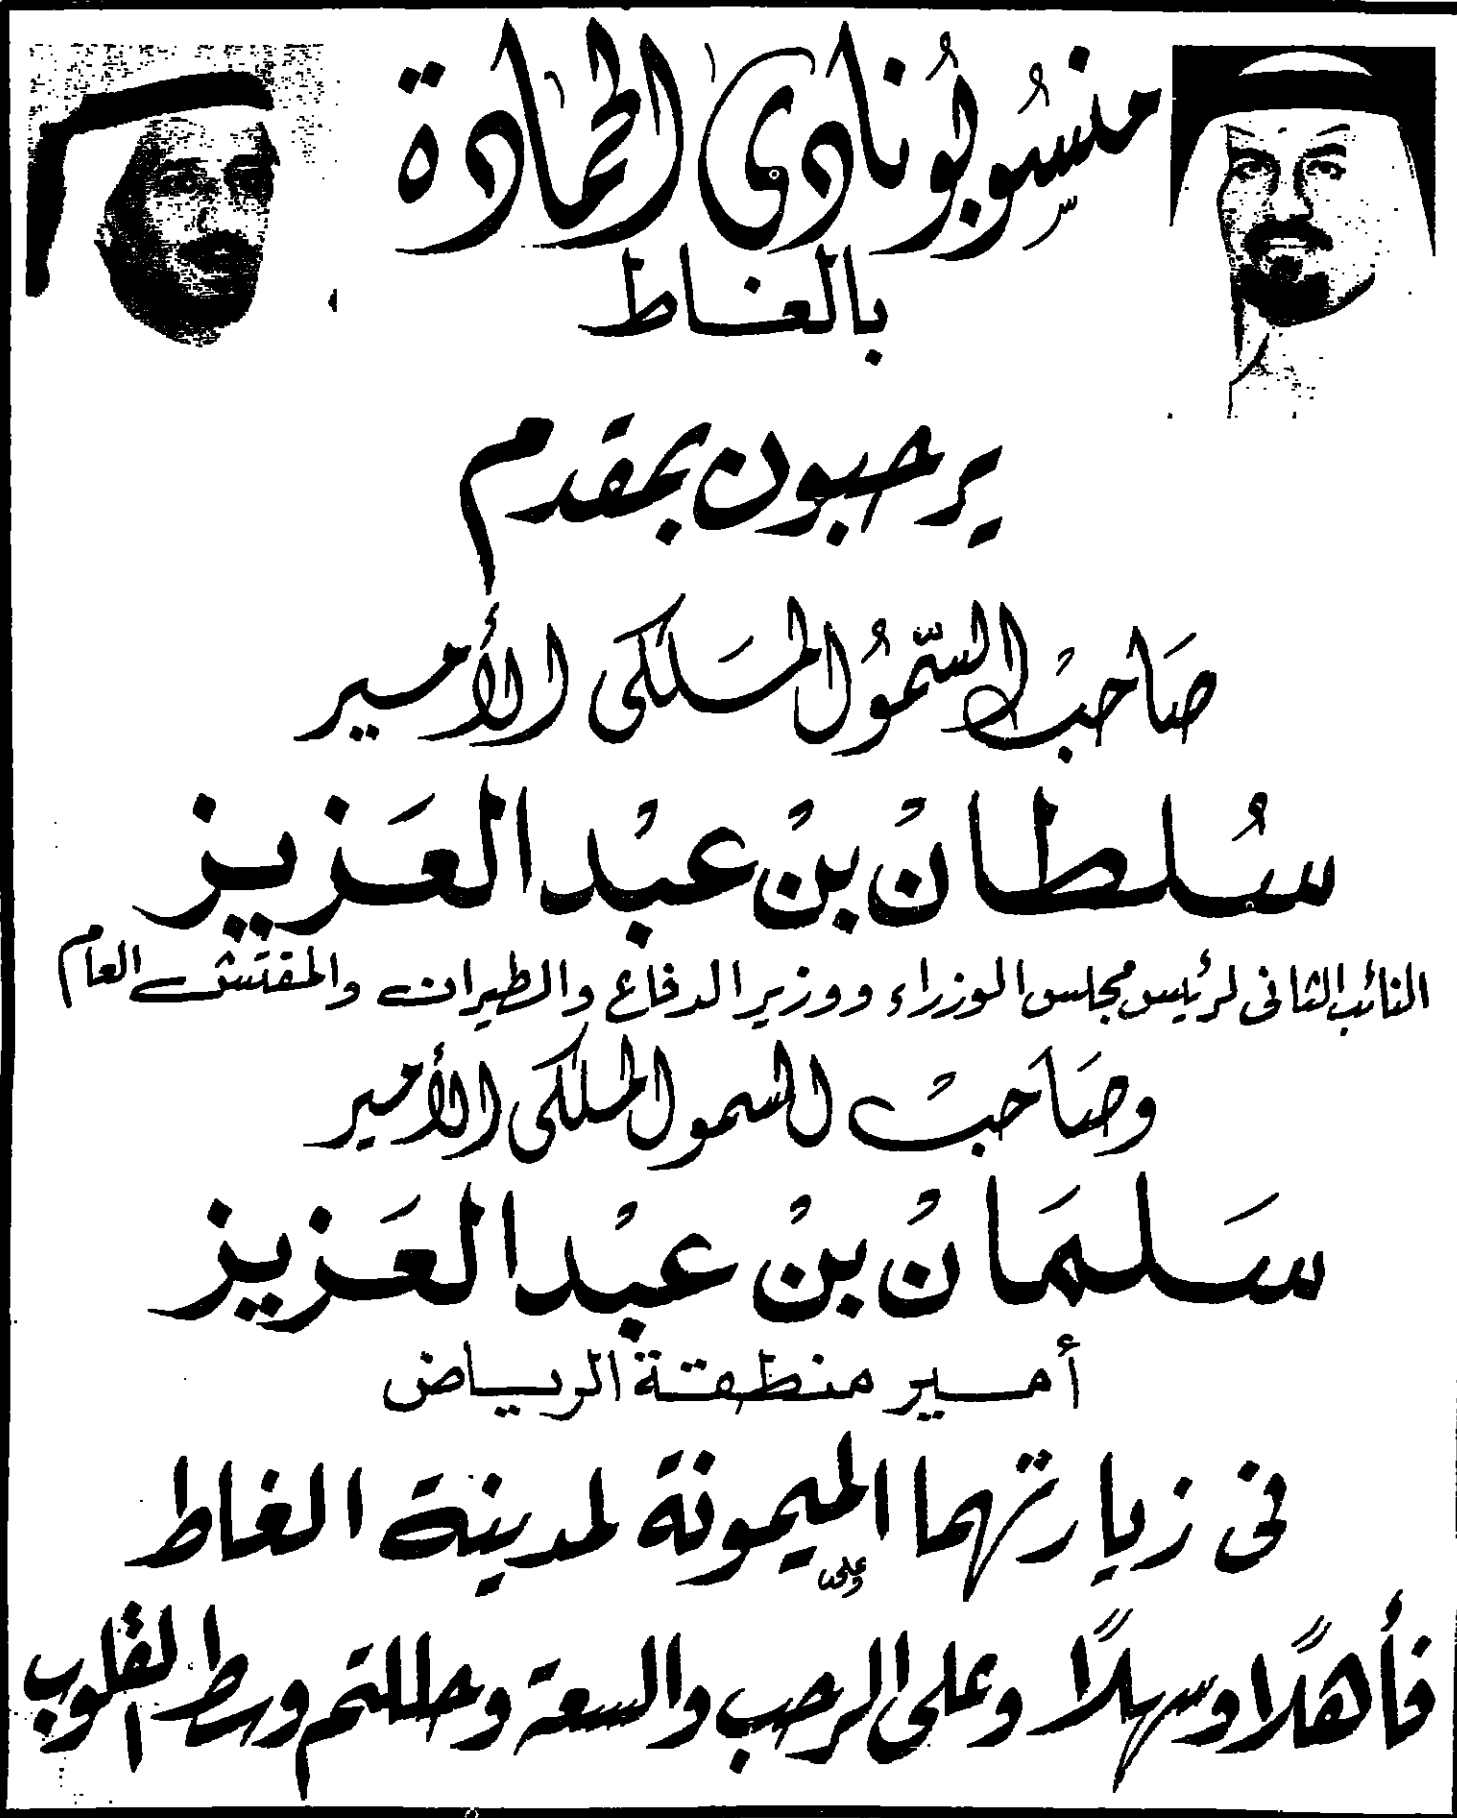 منسُوبُو نادى الحمادة
بالغاط
يرحبون بمقدم
صَاحبْ السّموُ المَلكى الأمير
سُلطانْ بنْ عبْد العَزيز
النائب الثانى لرئيس مجلس الوزراء ووزير الدفاع والطيران والمفتش العام
وصَاحبْ السمو الملكى الأمير
سَلمَانْ بنْ عبْد العَزيز
أمير منطقة الرياض
فى زيارتهما الميمونة لمدينة الغاط
فأهلًا وسهلًا وعلى الرحب والسعة وحللتم وسط القلوب